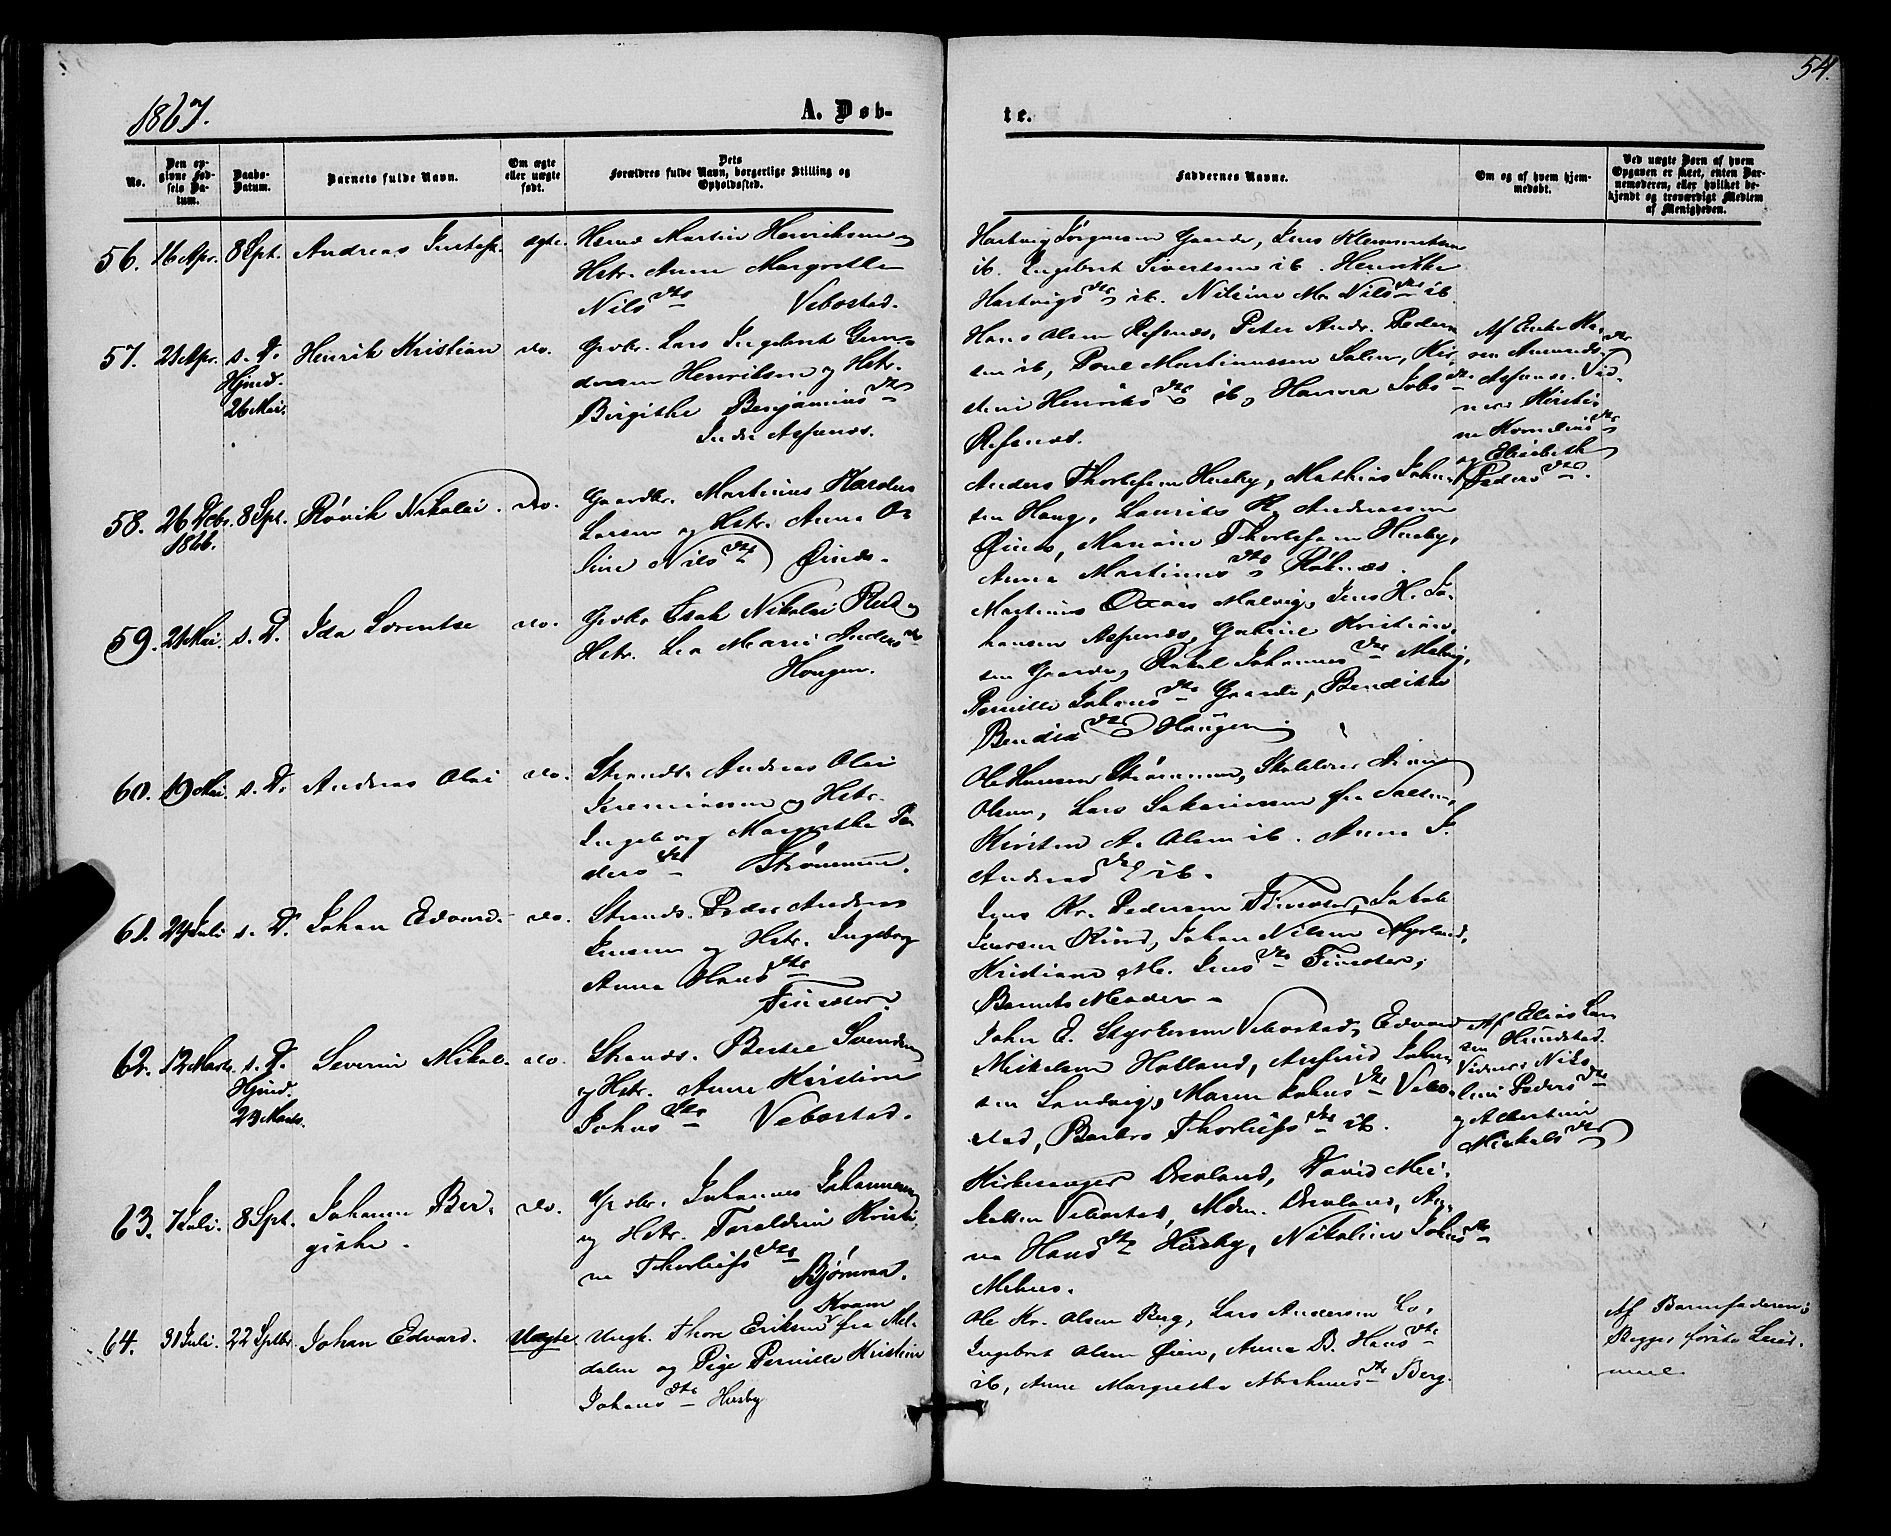 54.
1867.
A. Døb-
te.
No.
Den op-
givne Fød-
sels Da-
tum.
Daabs-
Datum.
Barnets fulde Navn.
Om ægte
eller uægte
født.
Dets
Forældres fulde Navn, borgerlige Stilling og
Opholdssted.
Faddernes Navne.
Om og af hvem hjem-
medøbt.
Ved uægte Børn af hvem
Opgaven er skeet, enten Bar-
nemoderen, eller hvilket be-
kjendt og troværdigt Medlem
af Menigheden.
56. 16 Apr. 8 Spt. Andreas ægte. Martin Henriksen og
Hstr. Anne Margrethe
Nilsdtr Vebostad.
Hartvig Jørgensen Gaarde, Jens Klemmentsen
ib. Ingebort Sivertsen ib. Henrikke
Hartvigsdtr ib. Nilsine M. Nilsdtr ib.
57. 21 Apr. s. D. Henrik Kristian do. Grdbr. Lars Ingebret
Hjmd. Henriksen og Hstr.
26 Mai. Birgithe Benjaminsdtr
Indre Aspenæs.
Hans Olsen Refsnæs, Peter Andr. Peder-
sen ib, Poul Martinussen Salen, Kir-
stine Henriksdtr ib, Hanna Jobsdtr
Refsnæs.
Af Enke Ka-
ren Amundsdtr
Aspenæs. Vid-
ner: Kirsti-
ne Korneliusdtr
og Elisabeth
Pedersdtr.
58. 26 Decbr. 8 Spt. Rørik Nikolai. do. Gaardbr. Martinus
1866. Larsen og Hstr. Anna O-
line Nilsdtr Øinæs.
Anders Thorlefsen Husby, Mathias Johan-
sen Haug, Laurits H. Andreassen
Øinæs, Mariane Thorlefsen Husby,
Anna Martinusdtr Røknæs.
59. 21 Mai. s. D. Ida Lorentse do. Grdbr. Isak Nikolai og
Hstr. Lea Marie Andersdtr
Hougen.
Martinus Malvig, Jens H. Jo-
hansen Aspenæs, Gabriel Kristian-
sen Gaarde, Rakel Johannesdtr Malvig,
Pernille Johansdtr Gaarde, Bendikte
Hougen
60. 19 Mai. s. D. Andreas Olai do. Strands. Andreas Olai
Jeremiassen og Hstr.
Ingeborg Margrethe Pe-
dersdtr Strømmen.
Ole Hansen Strømmen,
Olsen, Lars Sakariassen fra Salten,
Kirsten A. Olsen ib. Anne J.
Andreasdtr ib.
61. 24 Juli s. D. Johan Edvard. do. Strands. Peder Andreas
Jensen og Hstr. Ingeborg
Anna Hansdtr
Finsæter.
Jens Kr. Pedersen Finsæter, Jakob
Iversen Rind, Johan Nilsen Myrland,
Kristiane M. Jensdtr Finsæter,
Barnets Moder.
62. 12 Marts. s. D. Severin Mikal. do. Strands. Bertel Svendsen
Hjmd. og Hstr. Anne Kirstine
23 Marts. Johnsdtr Vebostad.
John E. Styrkersen Vebostad, Edvard
Mikelsen Holland, Anfind Johan-
sen Sandvig, Maren Johnsdtr Vebo-
stad, Barbro Thorleifsdtr ib.
Af Elias Lar-
sen Hundstad.
Vidner: Niko-
line Pedersdtr
og Albertine
Mikalsdtr
63. 7 Juli. 8 Spt. Johanne Ber- do. Grdbr. Johannes Johannesen
githe. og Hstr. Kristi-
ne Thorleifsdtr Bjørnraa.
Kirkesanger Drevland, David Mei-
Vebostad, Mdm. Drevland, An-
na Hansdtr Husby, Nikoline Johansdtr
Mehus.
64. 31 Juli. 22 Septbr. Johan Edvard. Uægte. Ungk. Thore Eriksen Kvam fra Mel-
dalen og Pige Pernille Kristine
Johansdtr Husby
Ole Kr. Olsen Berg, Lars Andersen
Ingebort Olsen Øien, Anna B. Hansdtr
ib, Anne Margrethe Abrahamsdtr Berg.
Af Barnefaderen;
Begges første Leier-
maal.